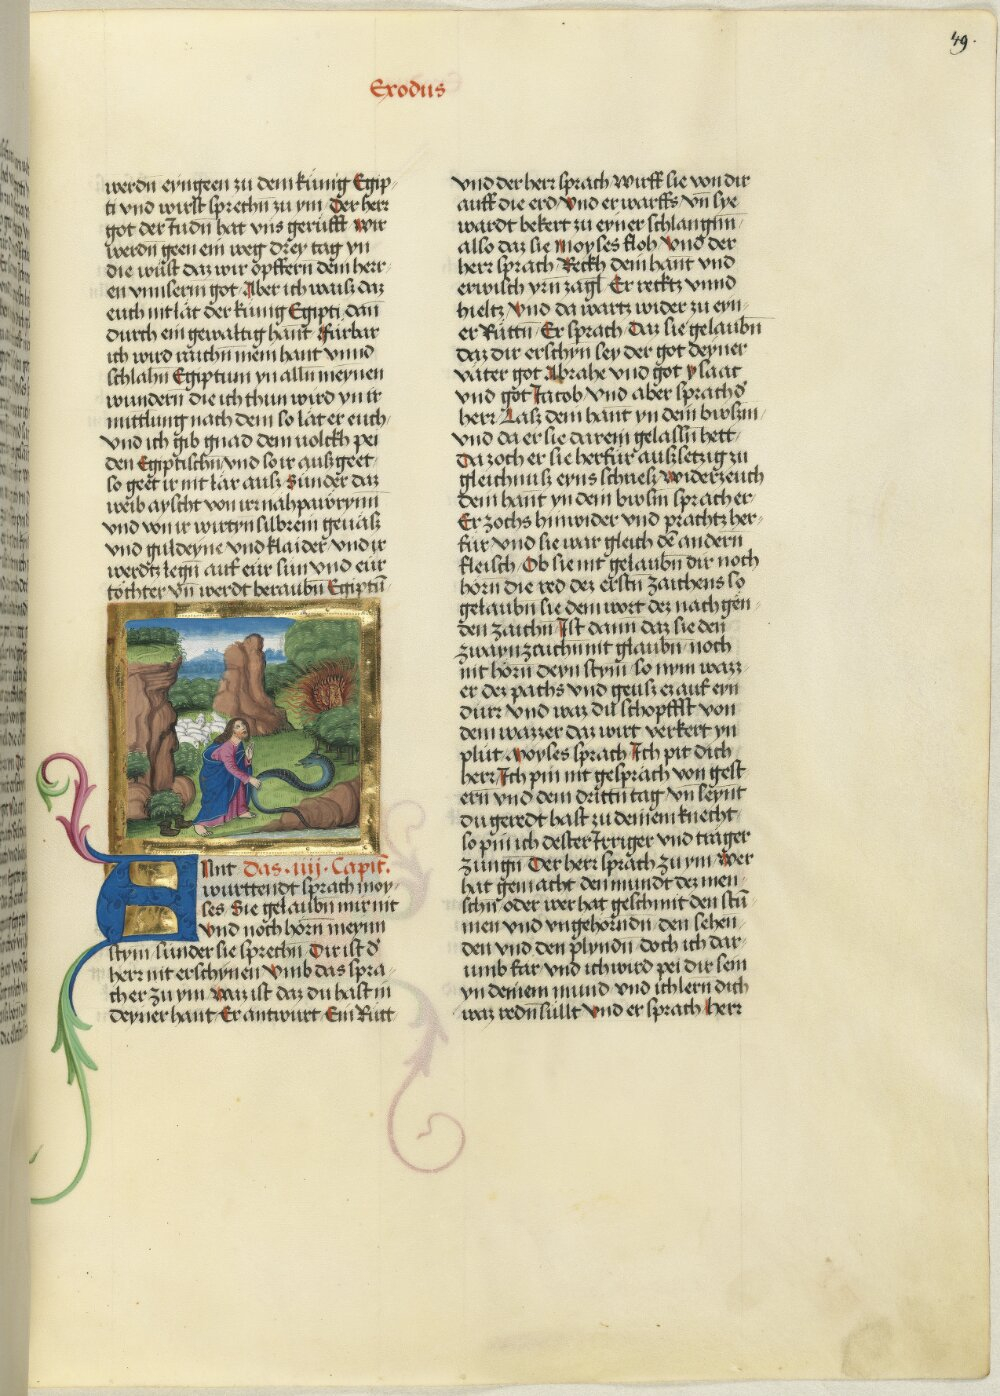 49.
Exodus
werdn eyngeen zu dem kunig Egip-
ti vnd wirst sprechn zu ym Der herr
got der Judn hat vns gerufft wir
werdn geen ein weg drey tag yn
die wüst daz wir opffern dem herr-
en vnnserm got Aber ich waisz daz
euch nit lat der kunig Egipti dan
durch ein gewaltig hant Furbar
ich wird raichn mein hant vnnd
schlahn Egiptum yn alln meynen
wundern die ich thun wird yn ir
mittlung nach dem so lat er euch
vnd ich gib gnad dem uolckh pei
den Egiptischn vnd so ir ausz geet
so geet ir nit lär ausz Sunder daz
weib ayscht von irz nahpawrynn
vnd von ir wirtyn silbrein geuäsz
vnd guldeyne vnd klaider vnd ir
werdtz legn auf eur sün vnd eur
töchter vn̄ werdt beraubn Egiptū
Ant Das ·iiij· Capit̄.
wurttendt sprach moy-
ses Sie gelaubn mir nit
vnd noch hörn meynn
stym sunder sie sprechn Dir ist d̓
herr nit erschynen Vmb das spra-
ch er zu ym Waz ist daz du hast in
deyner hant Er antwurt Ein Rutt
vnd der herr sprach Wirff sie von dir
auff die erd Vnd er warffs vn̄ sye
wardt bekert zu eyner schlangnn
also daz sie Moyses floh Vnd der
herr sprach Reckh dein hant vnd
erwisch yrn zagl Er recktz vnnd
hieltz Vnd da wartz wider zu eyn-
er Ruttn Er sprach Daz sie gelaubn
daz dir erschyn sey der got deyner
vater got Abrahe vnd got ysaac
vnd got Jacob vnd aber sprach d̓
herr Lasz dein hant yn dein buosm
vnd da er sie darein gelassn hett
Da zoch er sie herfür auszsetzig zu
gleichnusz eyns schnesz Widerzeuch
dein hant yn dein buosm sprach er
Er zochs hinwider vnd prachtz her-
für vnd sie war gleich dē andern
fleisch Ob sie nit gelaubn dir noch
hörn die red dez erstn zaichens so
gelaubn sie dem wort dez nachgen-
den zaichn Ist dann daz sie den
zwayn zaichn nit glaubn noch
nit hörn deyn stym so nym wazz-
er dez pachs vnd geusz ez auf eyn
dürr vnd waz du schopffst von
dem wazzer daz wirt verkert yn
plut Moyses sprach Ich pit dich
herr Ich pin nit gespräch von gest
ern vnd dem drittn tag vn̄ seynt
du geredt hast zu deinem knecht
so pin ich dester Irriger vnd träger
zungn Der herr sprach zu ym Wer
hat gemacht den mundt dez men-
schn oder wer hat geschmit den stū
men vnd vngehörndn den sehen
den vnd den plyndn doch ich dar-
umb far vnd ich wird pei dir sein
yn deinem mund vnd ich lern dich
waz redn sullt Vnd er sprach herr